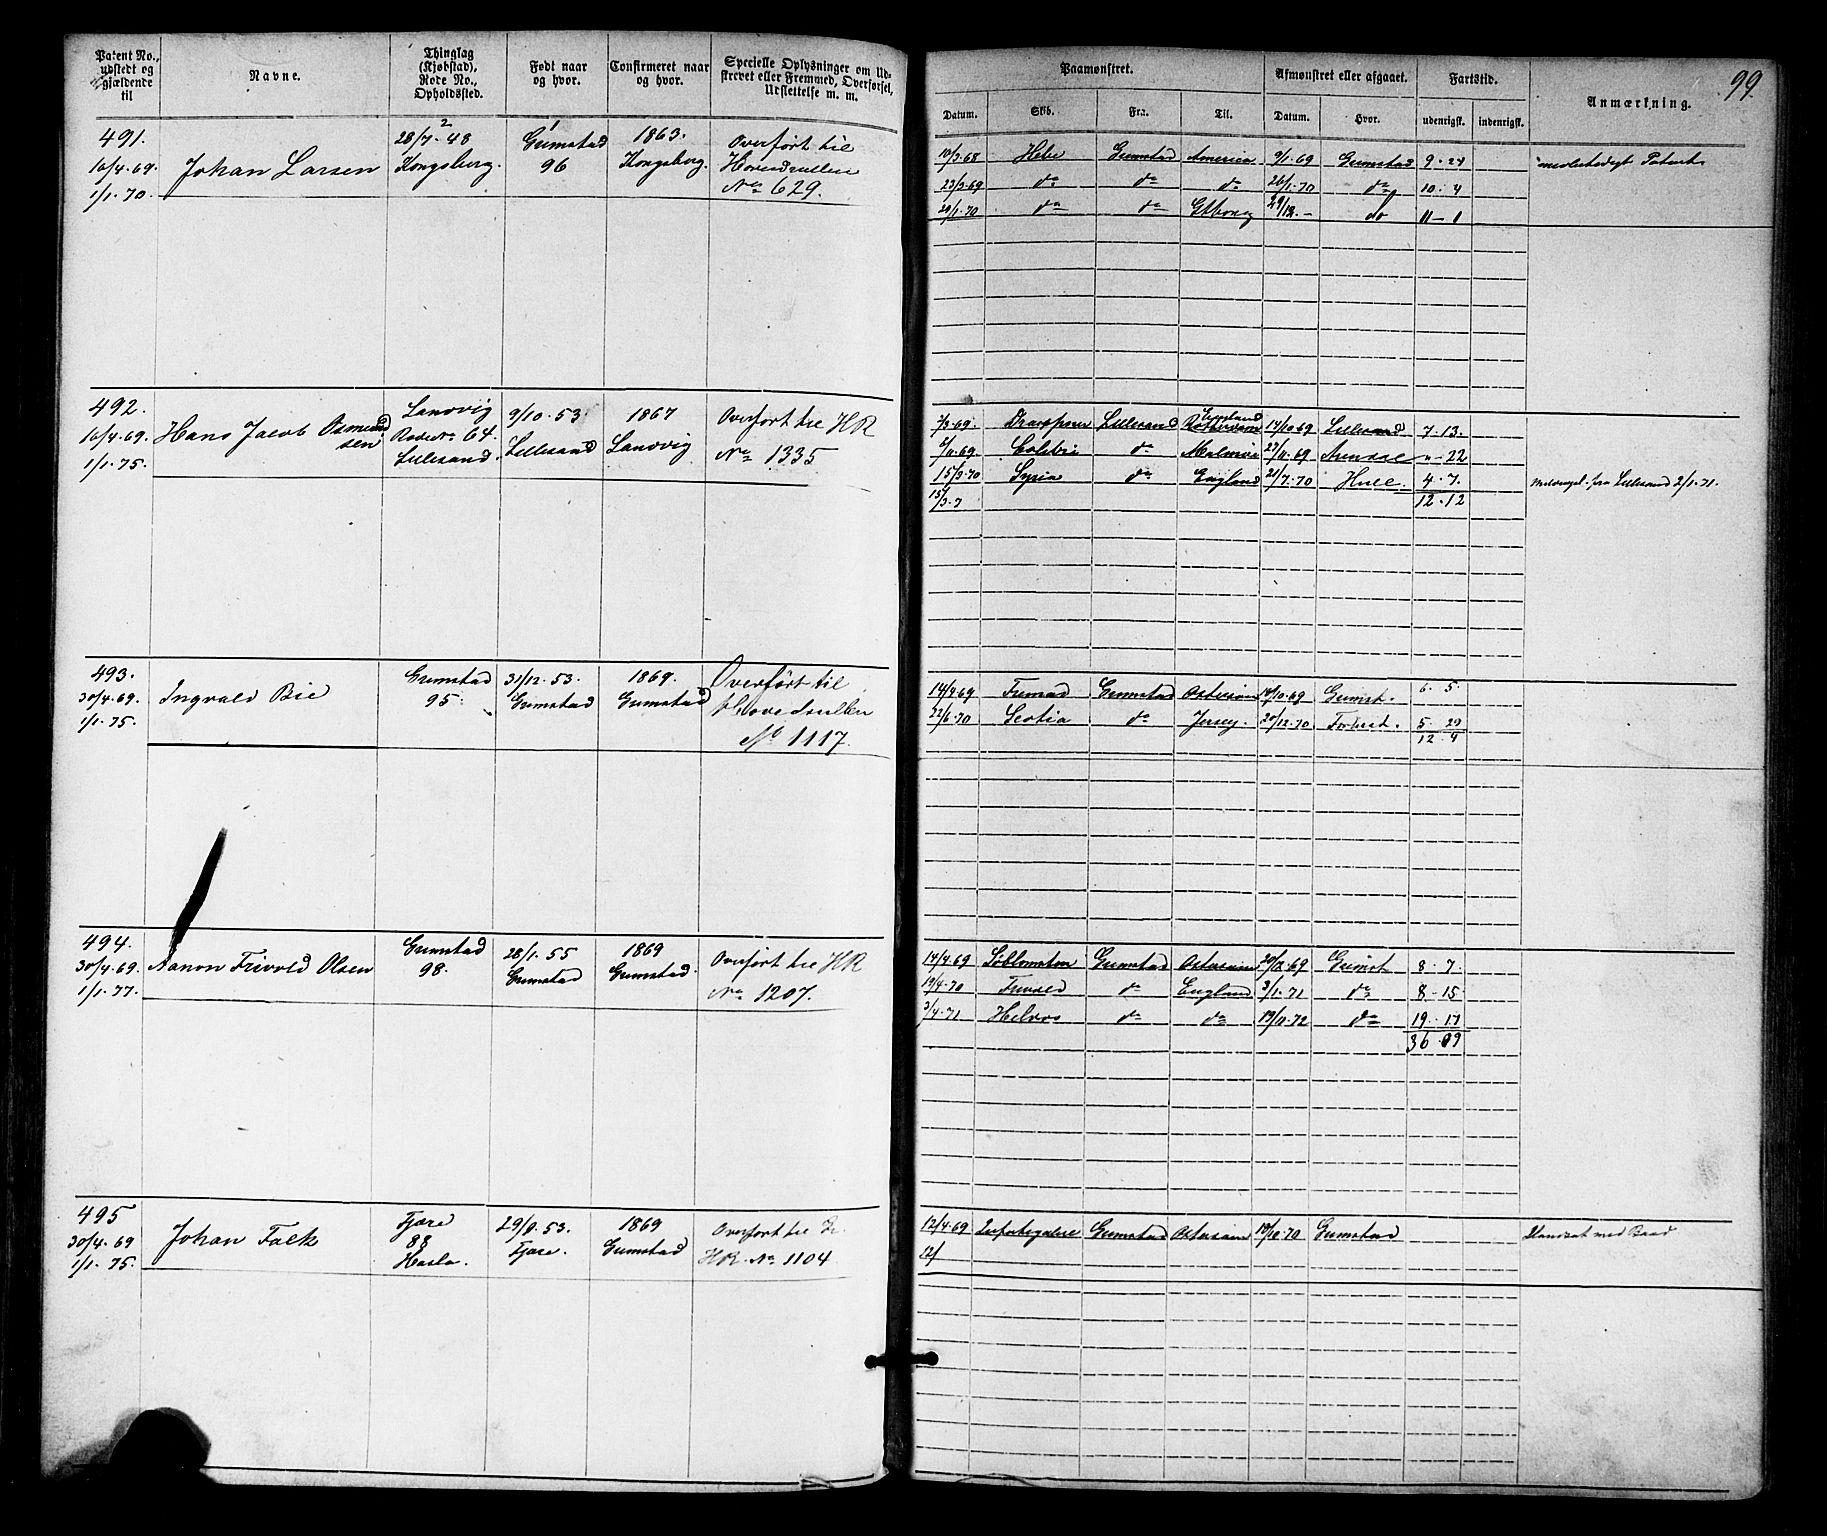 99.
Patent No., udstedt og gjældende til
Navne.
Thinglag (Kjøbstad), Rode No., Opholdssted.
Født naar og hvor.
Confirmeret naar og hvor.
Specielle Oplysninger om Udskrevet eller Fremmed, Overførsel, Udslettelse m. m.
Paamønstret.
Afmønstret eller afgaaet.
Fartstid.
Anmærkning.
Datum.
Skib.
Fra.
Til.
Datum.
Hvor.
udenrigsk.
indenrigsk.
491.
16/4.69.
1/1.70.
Johan Larsen
28/7 48
Kongsberg.
Grimstad
96
1863.
Kongsberg.
Overført til
Hovedrullen
No 629.
10/3.68 Hebe Grimstad America 9/1.69 Grimstad 9.24
23/3.69 do do do 26/1.70 do 10.4
29/1.70 do do 29/12.- do 11-1
492.
16/4.69.
1/1.75.
Hans Jacob Osmund
sen
Landvig
Rode No 64.
Lillesand.
9/10.53
Lillesand
1867
Landvig
Overført til HR
No 1335
7/3.69. Lillesand England
Rotterdam 14/10.69 Lillesand 7.13.
5/11.69 do Malmö 27/11.69 Arendal "-22
15/3.70 Syria do England 21/7.70 Hull. 4.7.
15/3.7 12.12
fra Lillesand 2/1.71.
493.
30/4.69.
1/1.75.
Ingvald Bie
Grimstad
95.
31/12.53.
Grimstad
1869.
Grimstad
Overført til
Hovedrullen
No 1117.
14/4.69 Grimstad Østersøen 14/10.69 Grimst. 6.5.
22/6.70 Scotia do Jersey. 20/12.70 5.29
12.4
494.
30/4.69.
1/1.77.
Nanon Frivold Olsen
Grimstad
98.
28/1.55
Grimstad
1869
Grimstad.
Overført til HR
No 1207.
14/4.69 Grimstad Østersøen 20/12.69 Grimst 8.7.
19/4.70 Frivold do England 3/1.71 do 8.15
3/4.71 Helios do do 19/11.72 do 19.17
36.09
495
30/4.69
1/1.75.
Johan Falk
Fjære
88
Hasla.
29/9.53.
Fjære.
1869
Grimstad
Overført til
HR. No 1104
12/4.69 Grimstad Østersøen 19/10.70 Grimstad
12/